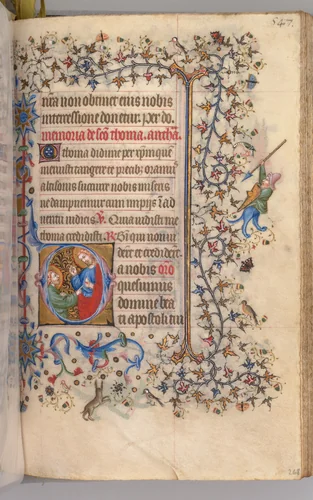 547.
nra non obtinet eius nobis
intercessione donetur. per do.
memoria de sco thoma. anthā.
O thoma didime per xpm quē
meruisti tangere te precib; oramus
altisonis succurre nobis miseris
ne dampnemur cum impijs in ad
uentu iudicis V. Quia uidisti me
thoma credidisti. R. Bti qui non ui
derūt et crediderūt.
a nobis oro
quesumus
domine bea
ti apostoli tui